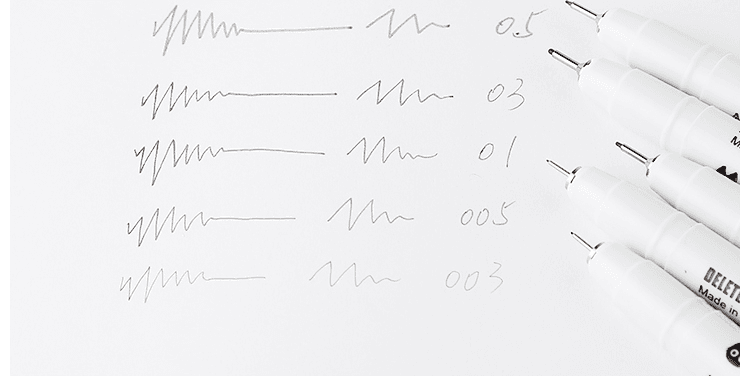 0.5
03
01
005
003
DELETE
Made in